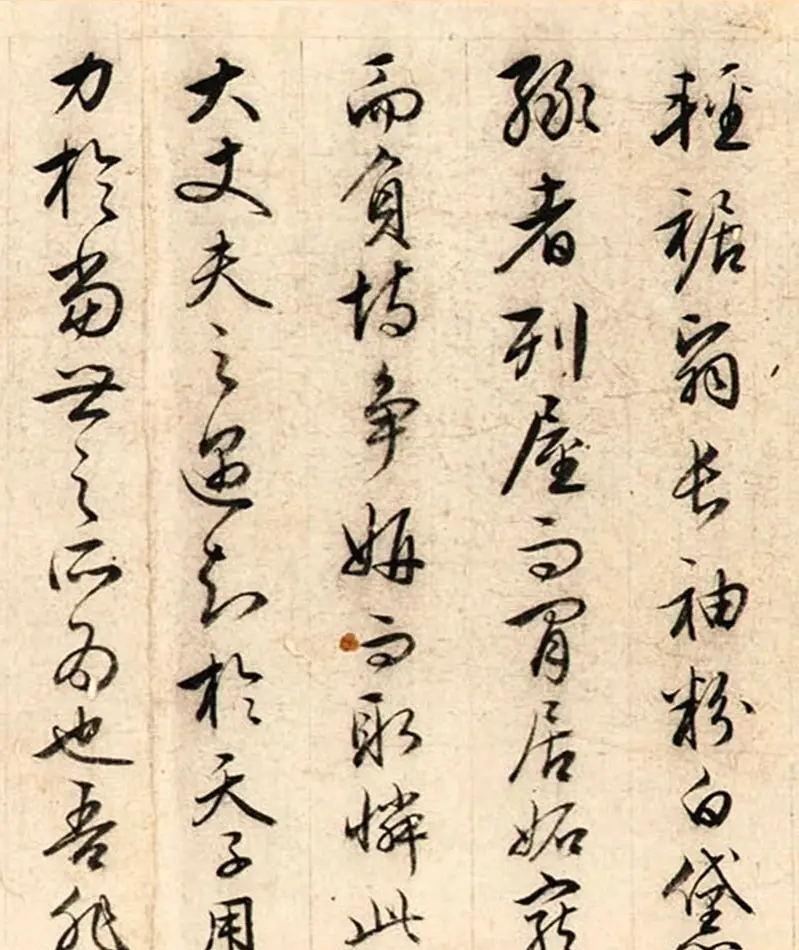 輕裾翳長袖粉白黛
綠者列屋而閒居妬寵
而負恃爭妍而取憐此
大丈夫之遇知於天子用
力於當世之所為也吾非